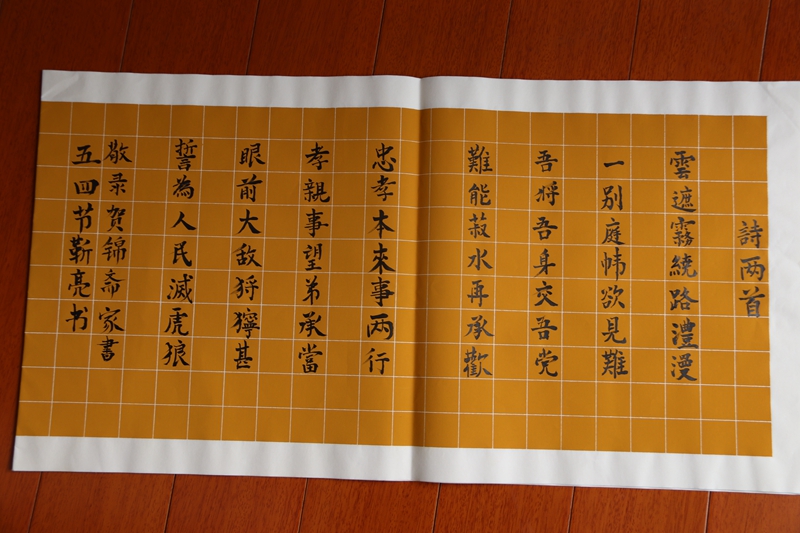 詩两首
雲遮霧繞路澧漫
一别庭帏欲見難
吾将吾身交吾党
難能菽水再承歡
忠孝本来事两行
孝親事望弟承當
眼前大敌狰獰甚
誓為人民滅虎狼
敬录贺锦斋家書
五四节靳亮书